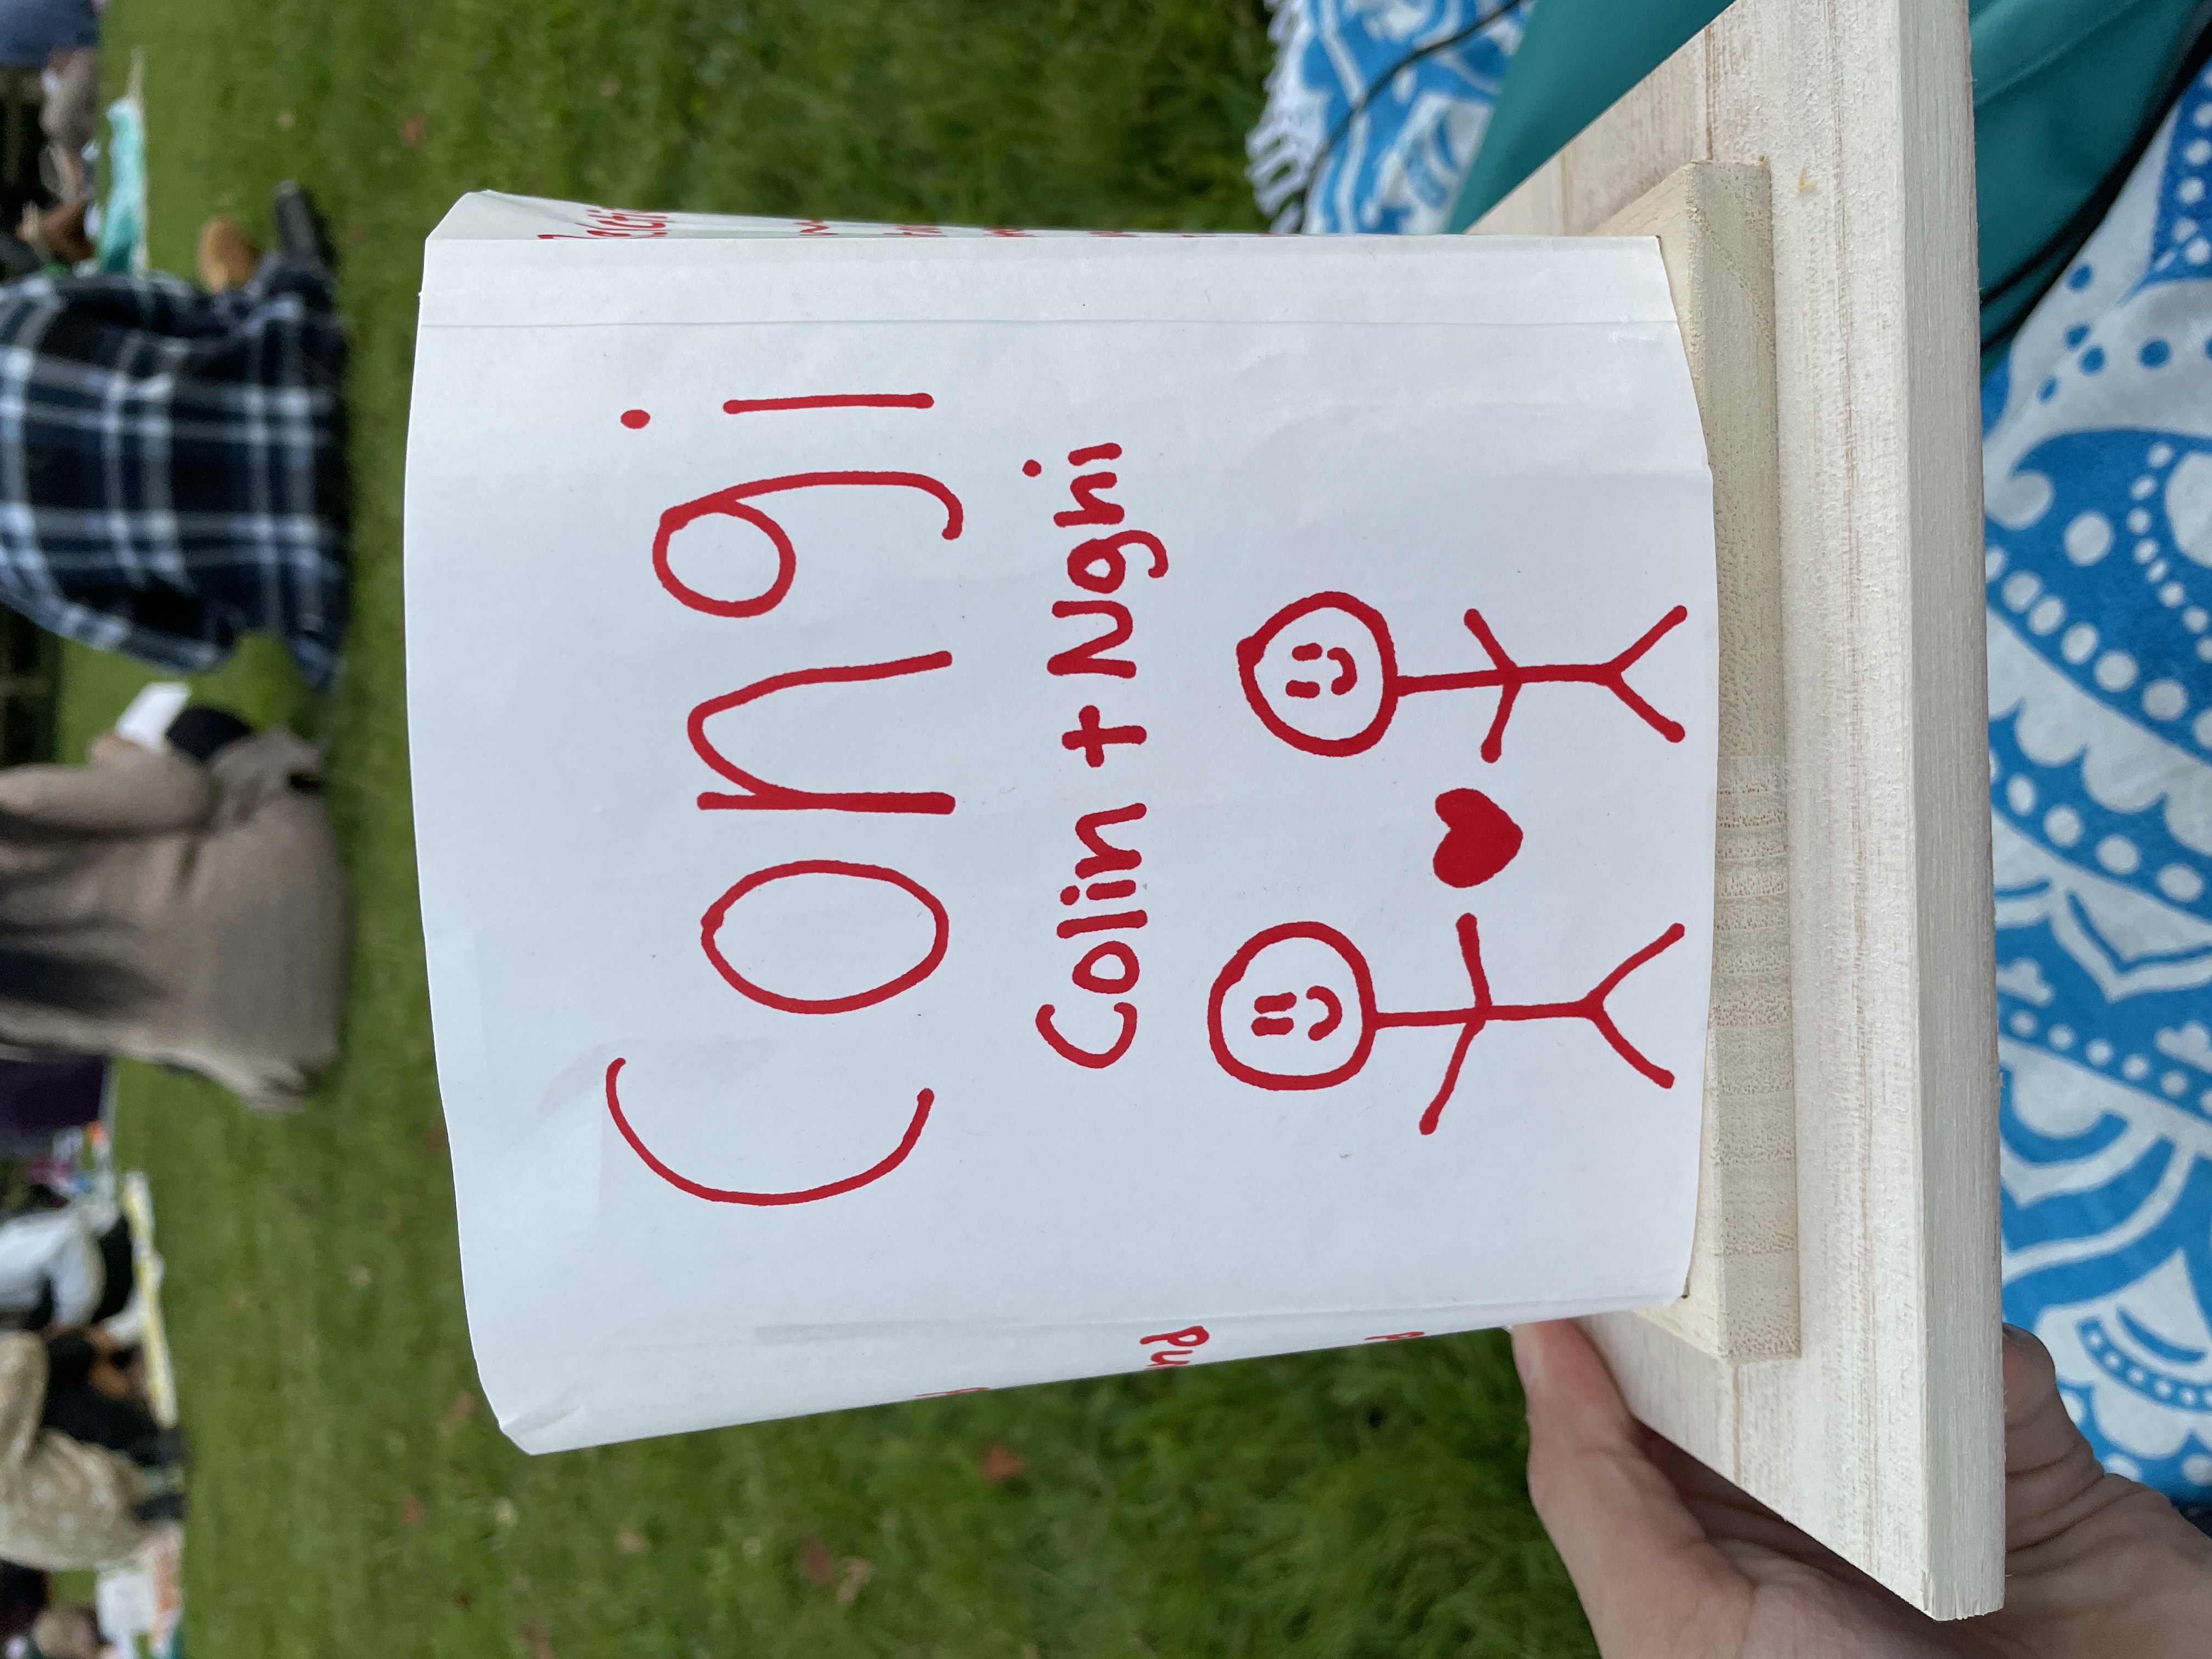 Congi
Colin + Nghi